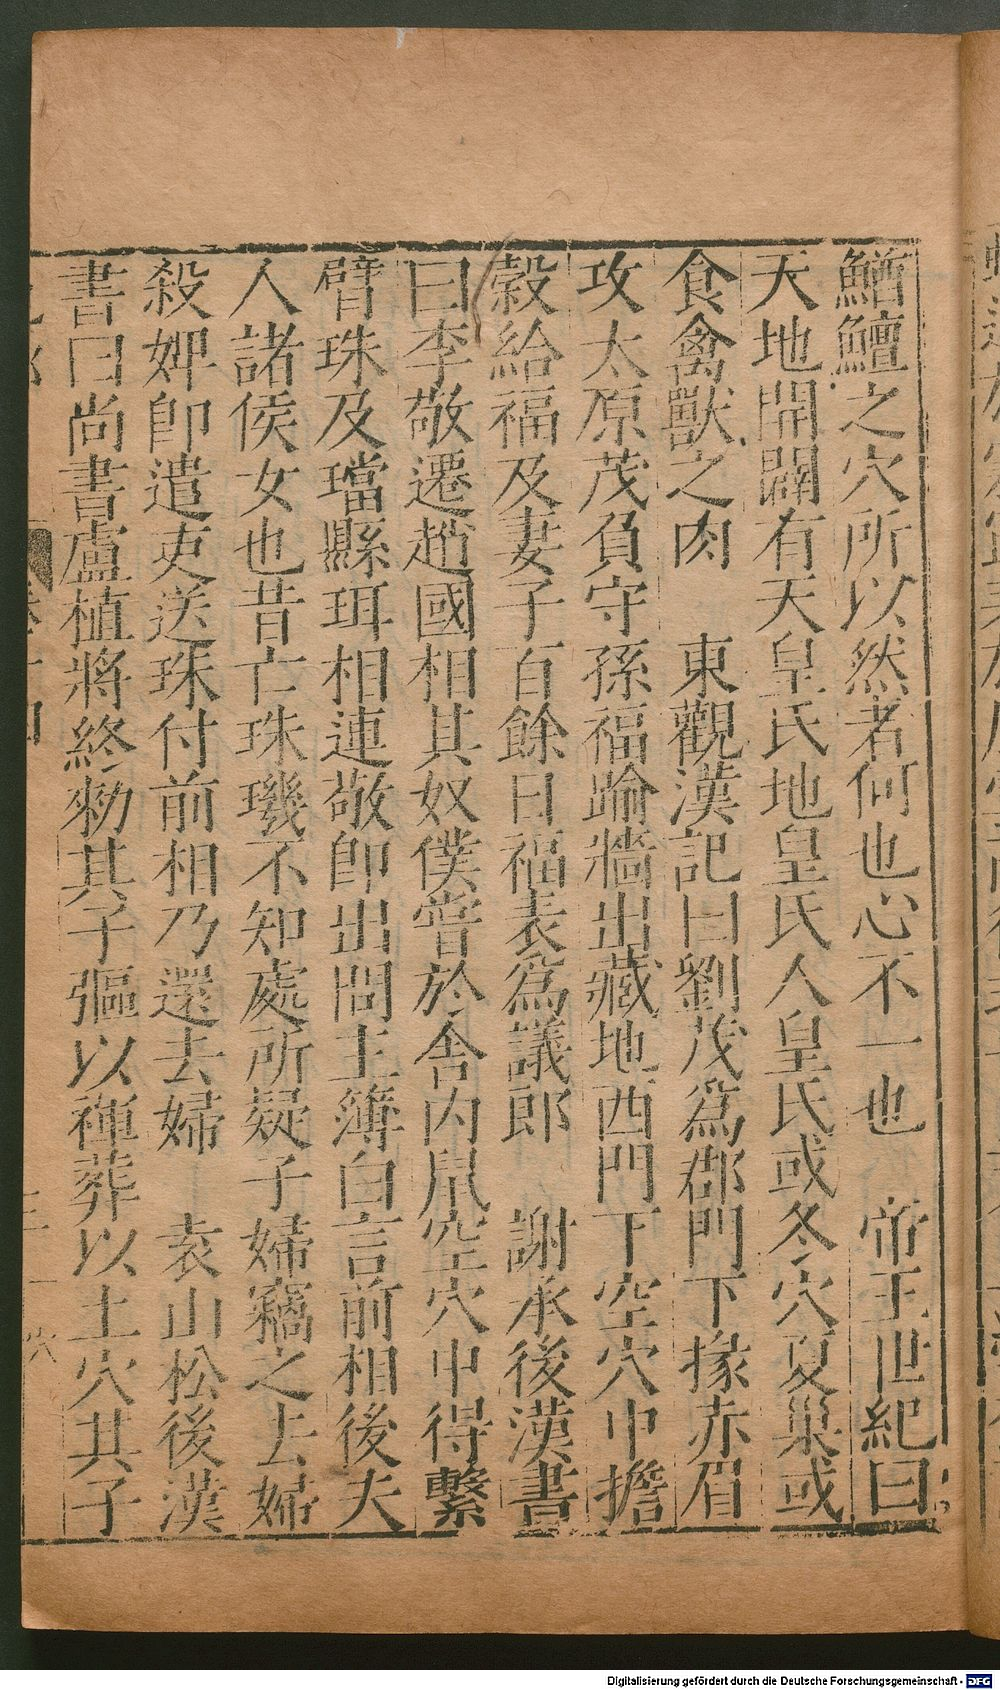 鰌鱣之穴所以然者何也心不一也　帝王世紀曰
天地開闢有天皇氏地皇氏人皇氏或冬穴夏巢或
食禽獸之肉　東觀漢記曰劉茂爲郡門下掾赤眉
攻太原茂負守孫福踰牆出藏地西門下空穴中擔
穀給福及妻子百餘日福表爲議郎　謝承後漢書
曰李敬遷趙國相其奴僕嘗於舍內鼠空穴中得繫
臂珠及璫縣珥相連敬即出問主簿白言前相後夫
人諸侯女也昔亡珠璣不知處所疑子婦竊之去婦
殺婢即遣吏送珠付前相乃還去婦　袁山松後漢
書曰尚書盧植將終勑其子彄以襌葬以土穴其子
Digitalisierung gefördert durch die Deutsche Forschungsgemeinschaft - DFG